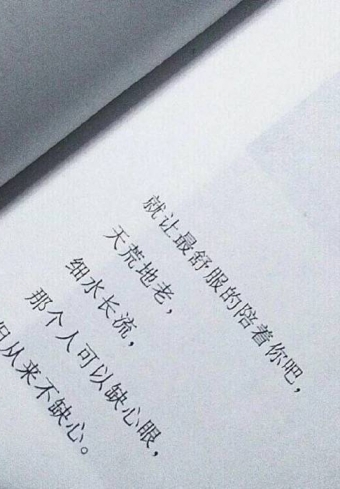 就让最舒服的陪着你吧，
天荒地老，
细水长流，
那个人可以缺心眼，
但从来不缺心。